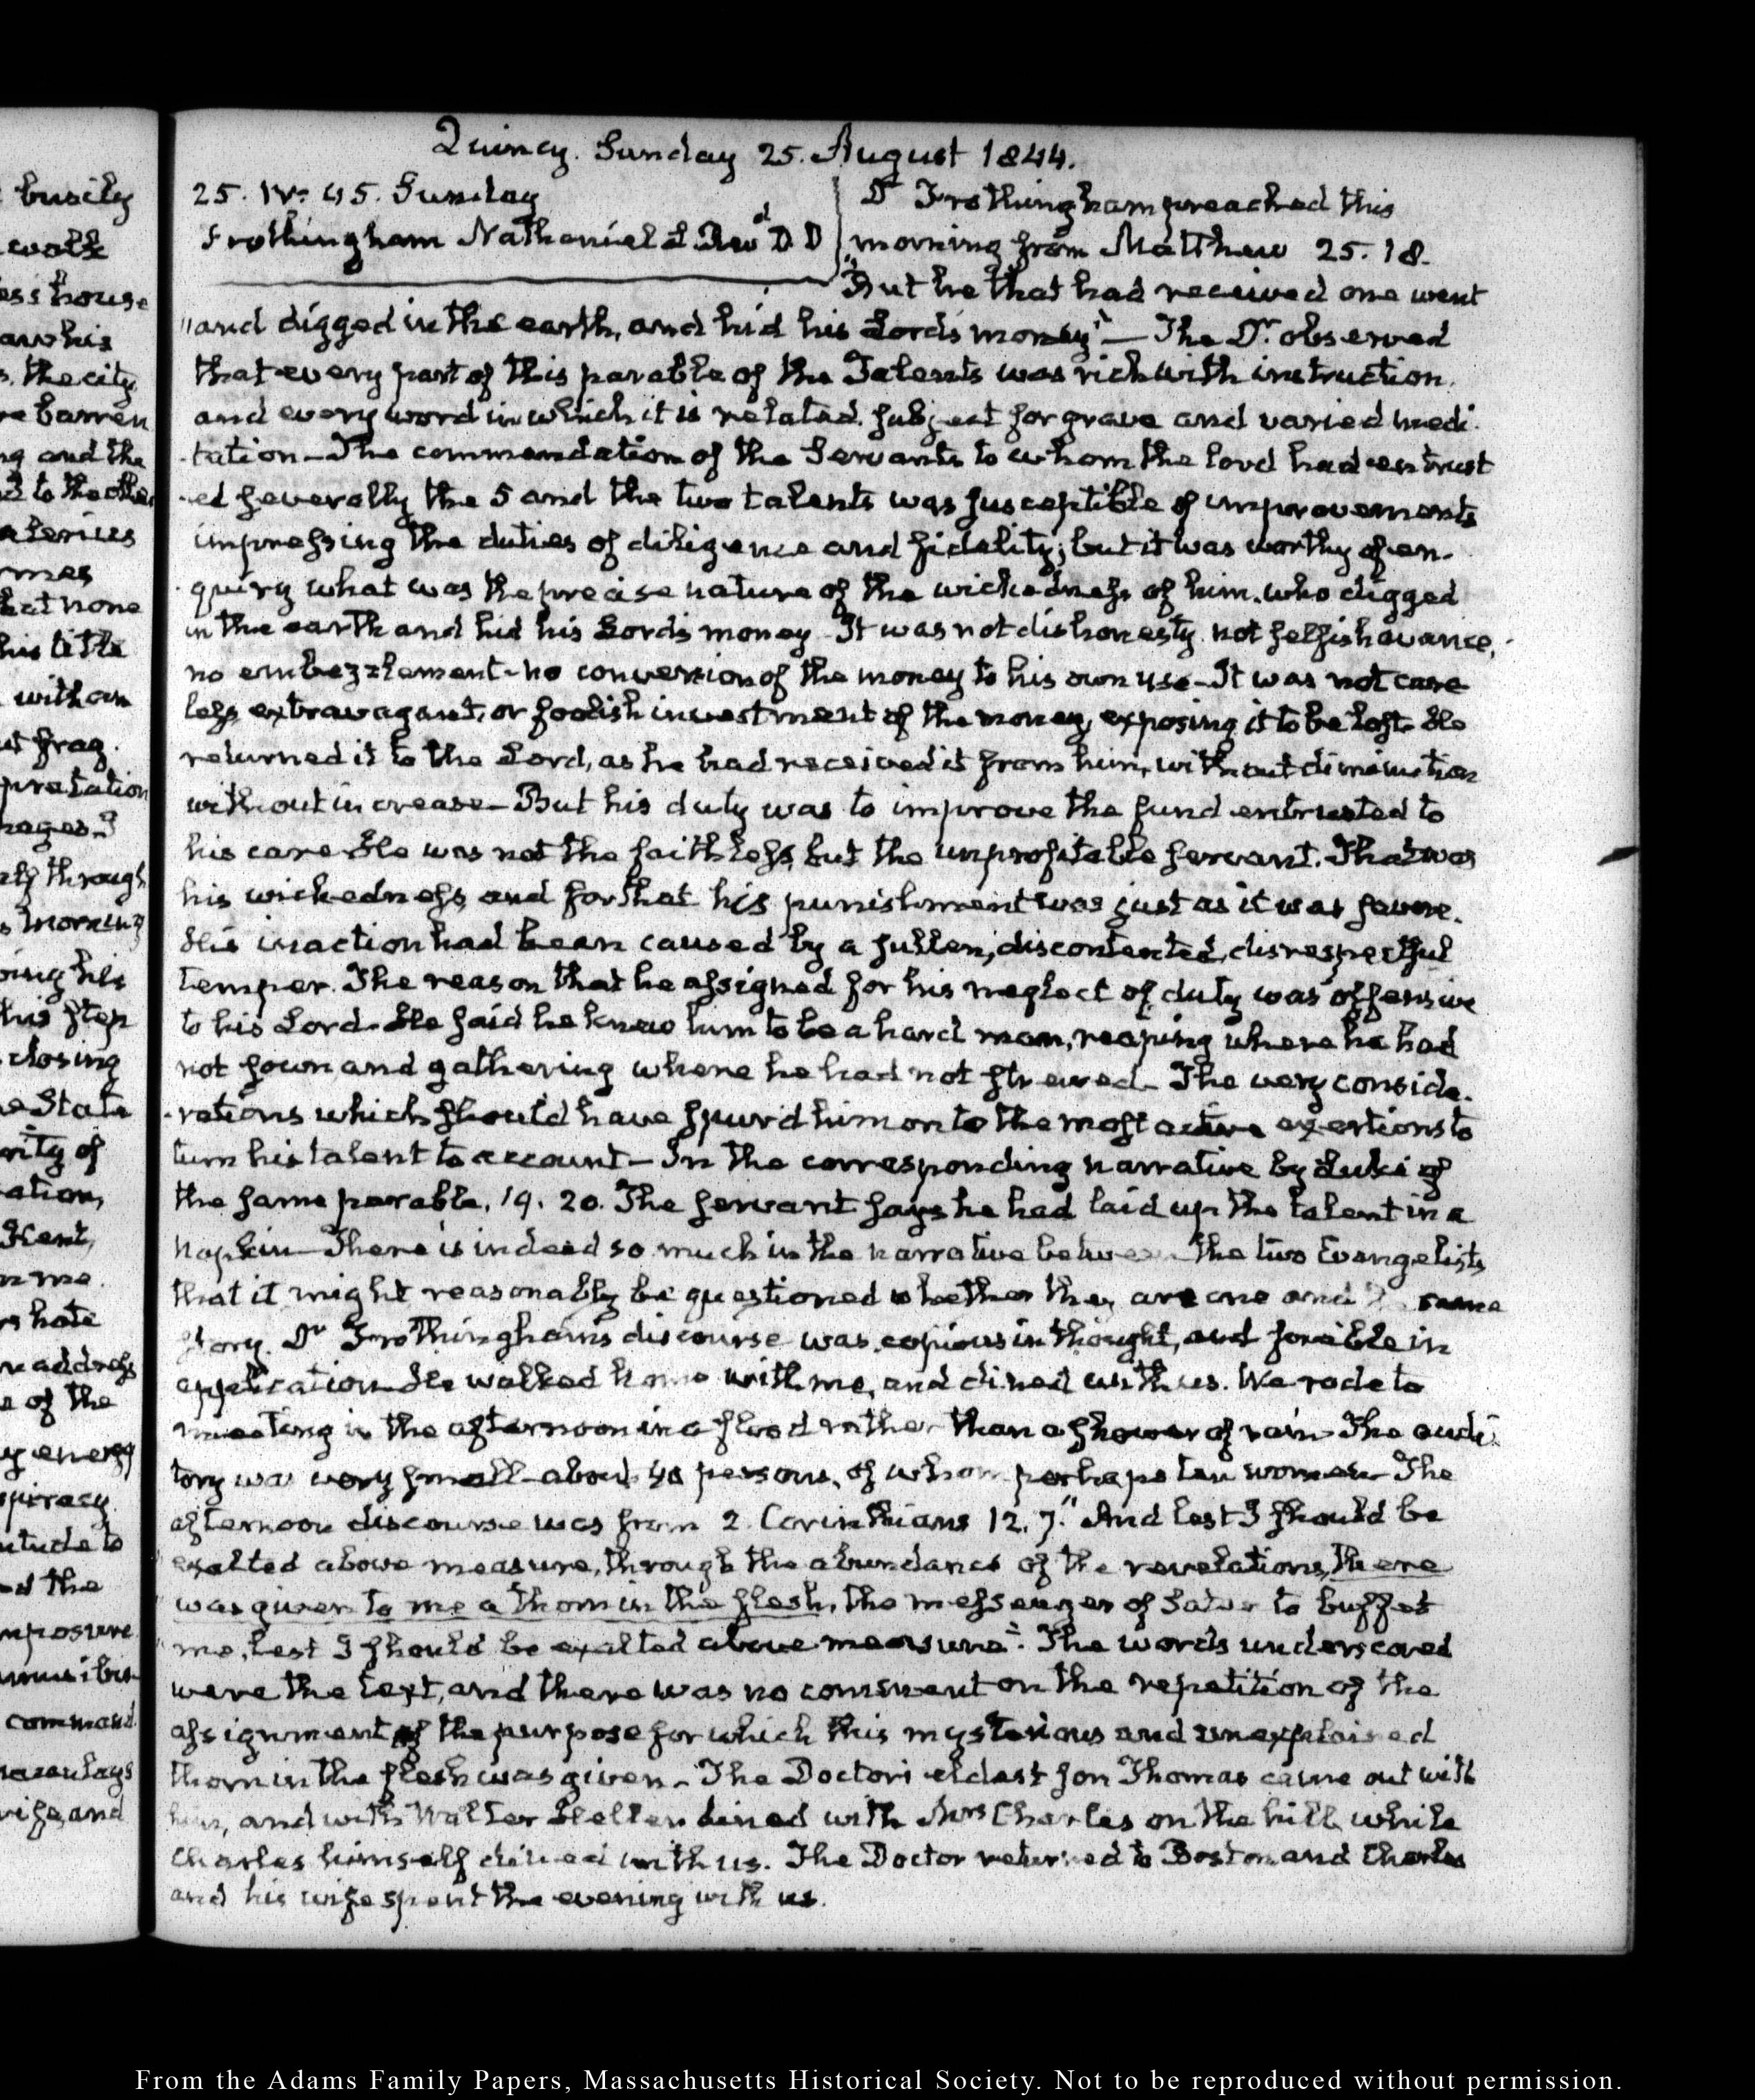 Quincy. Sunday 25. August 1844.
25. IV: 45. Sunday
Frothingham Nathaniel L Revd D D
Dr Frothingham preached this
morning from Matthew 25. 18.
"But he that had received one went
"and digged in the earth, and hid his Lord's money" — The Dr. observed
that every part of this parable of the Talents was rich with instruction.
and every word in which it is related. subject for grave and varied medi-
-tation — The commendation of the Servants to whom the lord had entrust
-ed severally the 5 and the two talents was susceptible of improvements
impressing the duties of diligence and fidelity; but it was worthy of en-
-quiry what was the precise nature of the wickedness of him, who digged
in the earth and hid his Lord's money - It was not dishonesty, not selfish avarice,
no embezzlement - no conversion of the money to his own use - It was not care
less extravagant, or foolish investment of the money, exposing it to be lost. He
returned it to the Lord, as he had received it from him, without diminution
without increase — But his duty was to improve the fund entrusted to
his care He was not the faithless, but the unprofitable servant. That was
his wickedness and for that his punishment was just as it was severe.
His inaction had been caused by a sullen, discontented, disrespectful
temper. The reason that he assigned for his neglect of duty was offensive
to his Lord. He said he knew him to be a hard man, reaping where he had
not sown and gathering where he had not strewed. The very conside-
-rations which should have spur'd him on to the most active exertions to
turn his talent to account — In the corresponding narrative by Luke of
the same parable, 19. 20. The servant says he had laid up the talent in a
napkin — There is indeed so much in the narrative between the two Evangelists
that it might reasonably be questioned whether they are one and the same
story. Dr Frothingham's discourse was copious in thought, and forcible in
application. He walked home with me, and dined with us. We rode to
meeting in the afternoon in a flood rather than a shower of rain - The audi
tory was very small - about 40 persons, of whom perhaps ten women — The
afternoon discourse was from 2. Corinthians 12. 7. "And lest I should be
exalted above measure, through the abundance of the revelations, there
"was given to me a thorn in the flesh, the messenger of Satan to buffet
"me, lest I should be exalted above measure". The words underscored
were the text, and there was no comment on the repetition of the
assignment of the purpose for which this mysterious and unexplained
thorn in the flesh was given - The Doctor's eldest son Thomas came out with
him, and with Walter Hellen dined with Mrs Charles on the hill, while
Charles himself dined with us. The Doctor returned to Boston and Charles
and his wife spent the evening with us.
busily
walk
ess house
aw his
s. the city
re barren
ng and the
d to the other
aterius
mes
hat none
his little
with an
ut frag.
pretation
rages.
ly through
s morning
oing his
his step
closing
e State
rity of
ation,
Kent,
n me.
rs hate
r address
e of the
y energy
spiracy
itude to
d the
mposure
command
wife, and
From the Adams Family Papers, Massachusetts Historical Society. Not to be reproduced without permission.